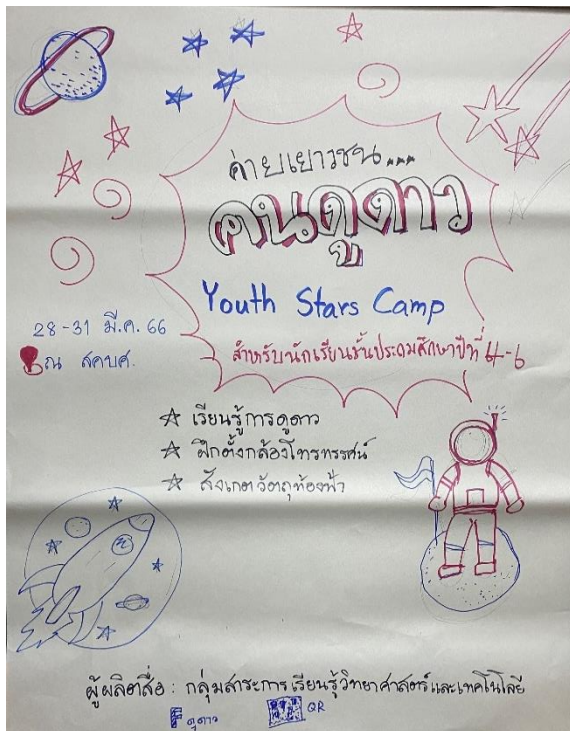 ค่ายเยาวชน...
คนดูดาว
Youth Stars Camp
สำหรับนักเรียนชั้นประถมศึกษาปีที่ 4-6
28-31 มี.ค. 66
ณ สคบศ.
เรียนรู้การดูดาว
ฝึกตั้งกล้องโทรทรรศน์
สังเกตวัตถุท้องฟ้า
ผู้ผลิตสื่อ : กลุ่มสาระการเรียนรู้วิทยาศาสตร์และเทคโนโลยี
F ดูดาว QR